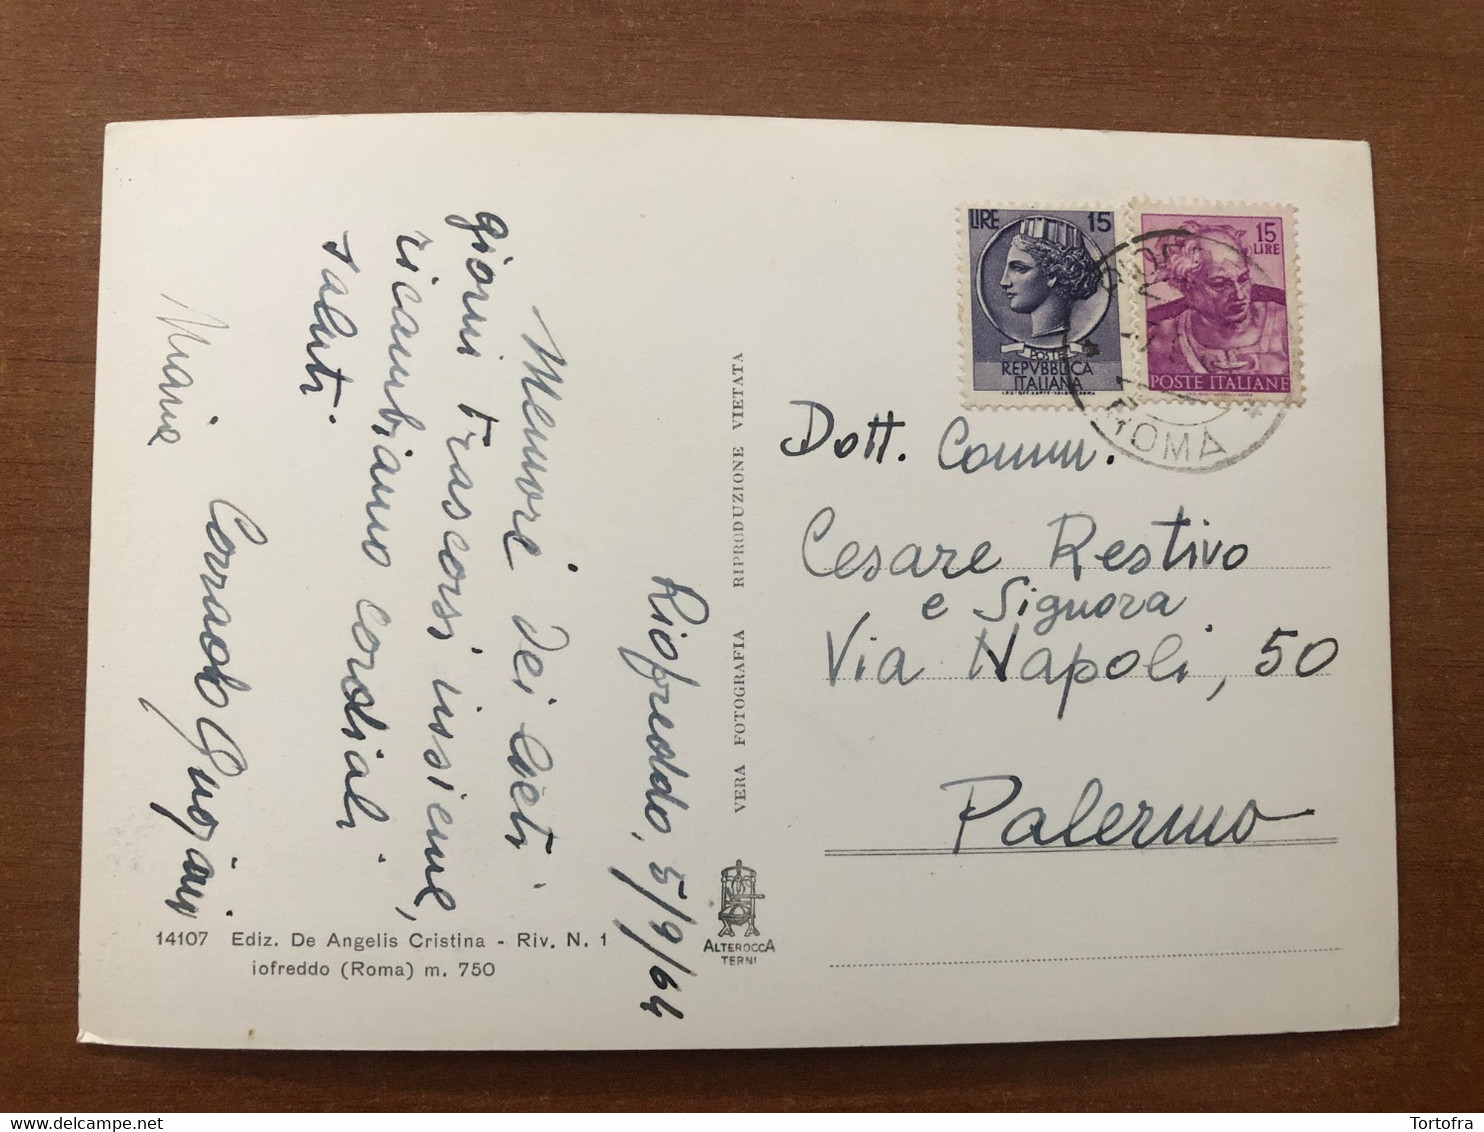 Riofreddo, 5/9/64
Memore dei lieti
giorni trascorsi insieme,
ricambiamo cordiali
saluti
Corrado
Maria
14107 Ediz. De Angelis Cristina - Riv. N. 1
iofreddo (Roma) m. 750
VERA FOTOGRAFIA RIPRODUZIONE VIETATA
ALTEROCCA
TERNI
LIRE 15
POSTE
REPVBBLICA
ITALIANA
15
LIRE
POSTE ITALIANE
ROMA
Dott. Comm.
Cesare Restivo
e Signora
Via Napoli, 50
Palermo
Tortofra